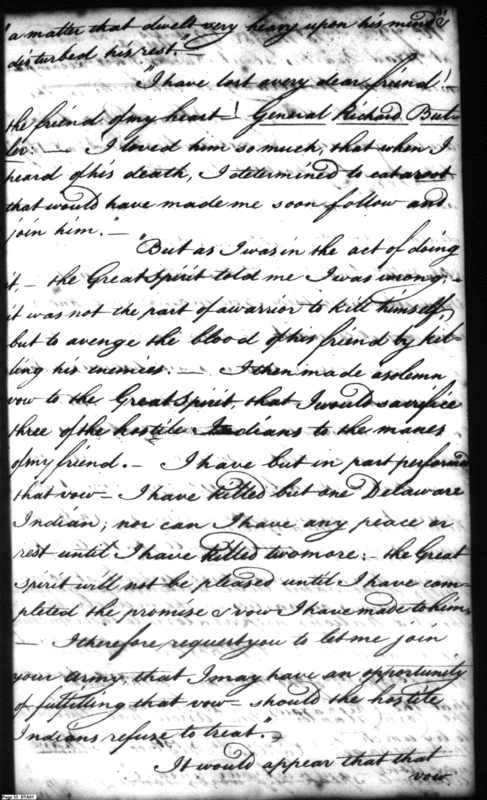 "a matter that dwelt very heavy upon his mind &
disturbed his rest." —
"I have lost a very dear friend! —
the friend of my heart! General Richard But-
ler: — I loved him so much, that when I
heard of his death, I determined to eat a root
that would have made me soon follow and
join him." —
"But as I was in the act of doing
it, — the Great Spirit told me I was wrong;
it was not the part of a warrior to kill himself,
but to avenge the blood of his friend by kil-
ling his enemies: — I then made a solemn
vow to the Great Spirit, that I would sacrifice
three of the hostile Indians to the manes
of my friend. — I have but in part performed
that vow — I have killed but one Delaware
Indian; nor can I have any peace or
rest until I have killed two more: — the Great
Spirit will not be pleased until I have com-
pleted the promise & vow I have made to him,
— I therefore request you to let me join
your army, that I may have an opportunity
of fulfilling that vow — should the hostile
Indians refuse to treat." —
It would appear that that
vow